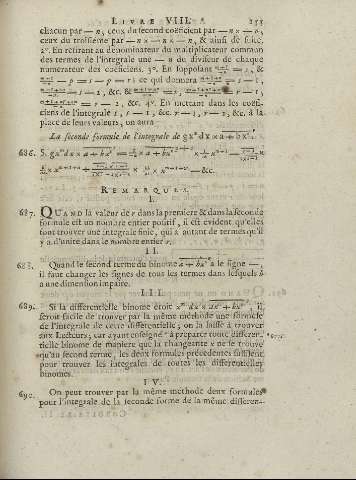 LIVRE VIII.
chacun par — n, ceux du second coefficient par — n × — n,
ceux du troisieme par — n × — n × — n, & ainsi de suite.
2°. En restant au denominateur du multiplicateur commun
des termes de l'integrale une — n du diviseur de chaque
numerateur des coeficiens. 3°. En supposant
ce qui donnera
= s — 2, &c. &
= r — 2, &c. 4°. En mettant dans les coefi-
ciens de l'integrale s, s — 1, &c. r — 1, r — 2, &c, à la
place de leurs valeurs, on aura
La seconde formule de l'integrale de
686. S.
— &c.
REMARQUES.
I.
687. QUAND la valeur de r dans la premiere & dans la seconde
formule est un nombre entier positif, il est évident qu'elles
font trouver une integrale finie, qui a autant de termes qu'il
y a d'unité dans le nombre entier r.
II.
688. Quand le second terme du binome a le signe —,
il faut changer les signes de tous les termes dans lesquels b
a une dimension impaire.
III.
689. Si la differentielle binome étoit il
seroit facile de trouver par la même methode une formule
de l'integrale de cette differentielle; on la laisse à trouver
aux Lecteurs; car ayant enseigné à préparer toute differen-
tielle binome de maniere que la changeante x ne se trouve
qu'au second terme, les deux formules précedentes suffisent
pour trouver les integrales de toutes les differentielles
binomes.
IV.
690. On peut trouver par la même methode deux formules
pour l'integrale de la seconde forme de la même differen-